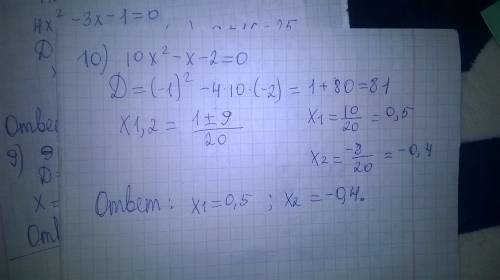 4x² - 3x - 1 = 0
D
10) 10x² - x - 2 = 0
D = (-1)² - 4·10·(-2) = 1 + 80 = 81
x1,2 = 1 ± 9 / 20
x1 = 10/20 = 0,5
x2 = -8/20 = -0,4
Ответ: x1 = 0,5 ; x2 = -0,4.
Ответ
9) 9
D =
x =
Отв